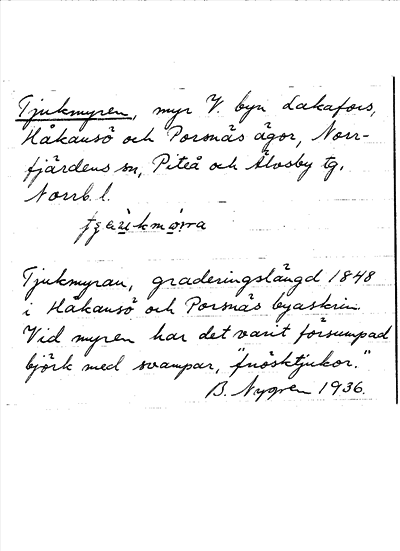 Tjukmyren, myr V. byn Lakafors,
Håkansö och Porsnäs ägor, Norr-
fjärdens sn, Piteå och Älvsby tg,
Norrb. l.
Tjukmyran, graderingslängd 1848
i Håkansö och Porsnäs byaskrin.
Vid myren har det varit försumpad
björk med svampar, "fnösktjukor."
B. Nygren 1936.